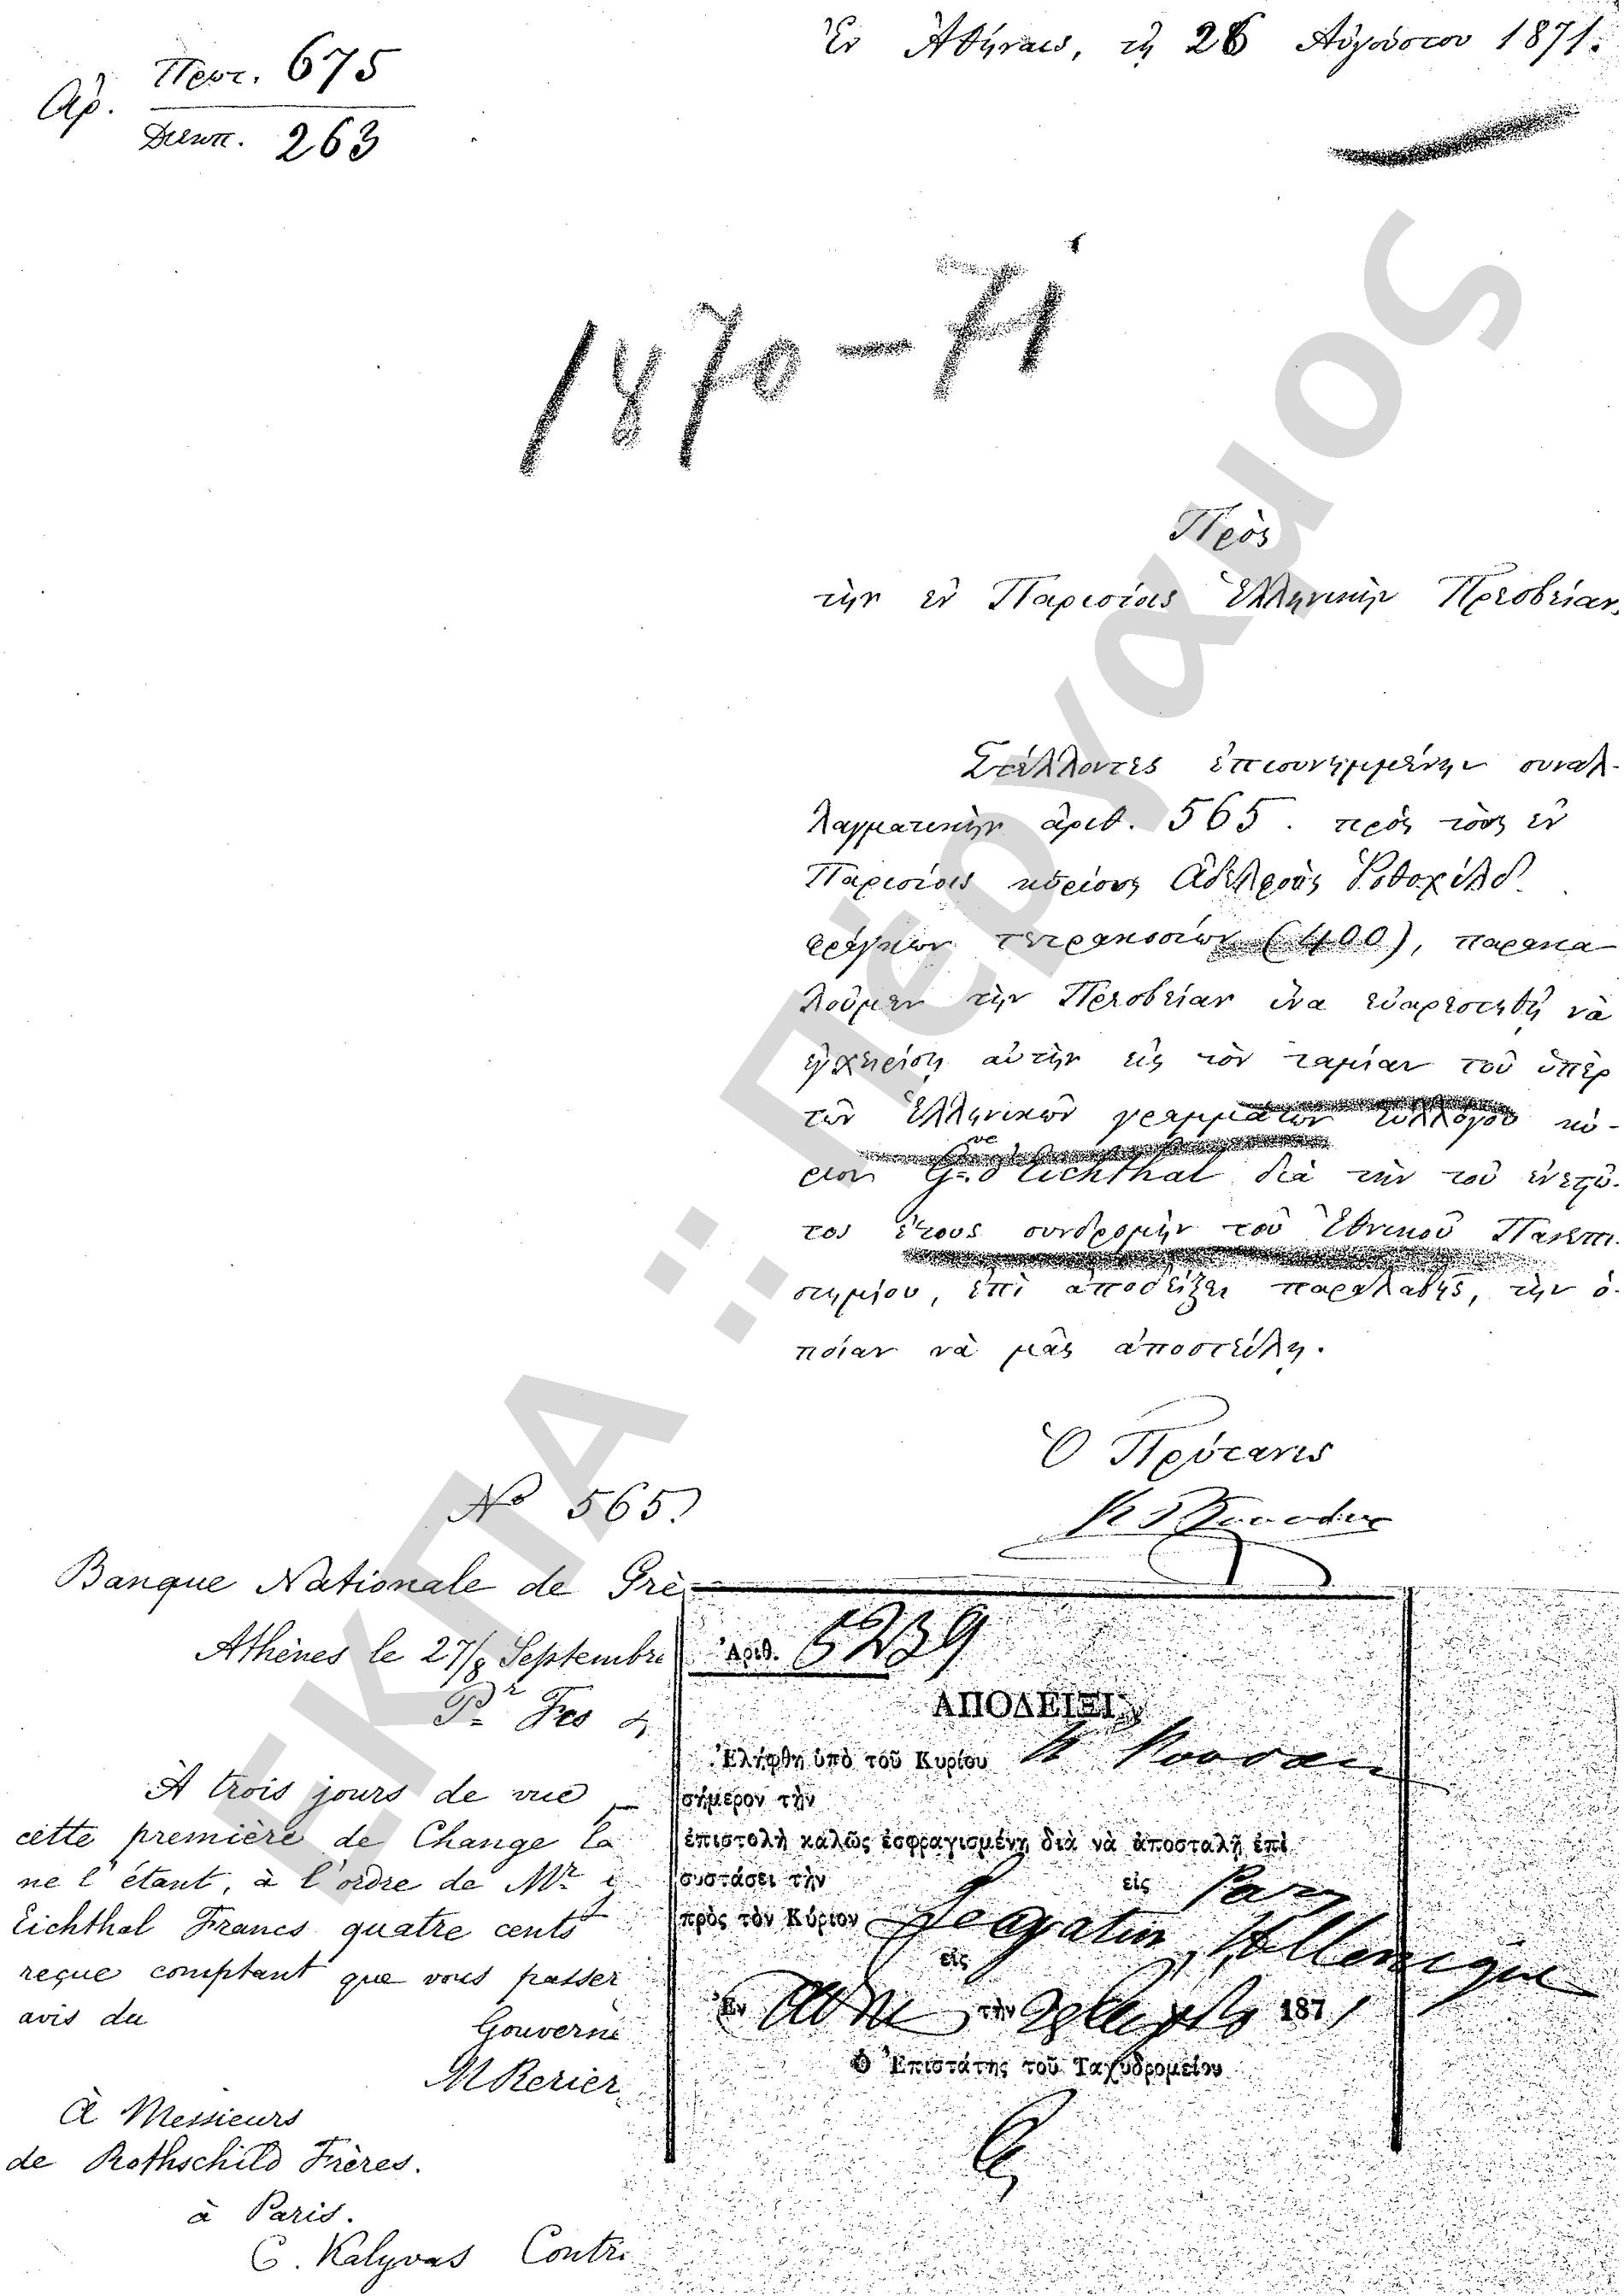 Ἐν Ἀθήναις, τῇ 26 Αὐγούστου 1871.
Ἀρ. Πρωτ. 675
Διεκπ. 263
1870-71
Πρὸς
τὴν ἐν Παρισίοις Ἑλληνικὴν Πρεσβείαν,
Στέλλοντες ἐπισυνημμένην συναλ-
λαγματικὴν ἀριθ. 565. πρὸς τοὺς ἐν
Παρισίοις κυρίους Ἀδελφοὺς Ῥοθσχίλδ
φράγκων τετρακοσίων (400), παρακα-
λοῦμεν τὴν Πρεσβείαν ἵνα εὐαρεστηθῇ νὰ
ἐγχειρίσῃ αὐτὴν εἰς τὸν ταμίαν τοῦ ὑπὲρ
τῶν Ἑλληνικῶν γραμμάτων συλλόγου κύ-
ριον Gve d'Eichthal διὰ τὴν τοῦ ἐνεστῶ-
τος ἔτους συνδρομὴν τοῦ Ἐθνικοῦ Πανεπι-
στημίου, ἐπὶ ἀποδείξει παραλαβῆς, τὴν ὁ-
ποίαν νὰ μᾶς ἀποστείλῃ.
Ὁ Πρύτανις
No 565.
Banque Nationale de Grè
Athènes le 27/8 Septembre
Pr Frcs 4
À trois jours de vue
cette première de Change la
ne l'étant, à l'ordre de Mr
Eichthal Francs quatre cents
reçue comptant que vous passer
avis du
Gouverne
M Renier
À Messieurs
de Rothschild Frères.
à Paris.
C. Kalyvas Contr
Ἀριθ. 5239
ΑΠΟΔΕΙΞΙΣ
Ἐλήφθη ὑπὸ τοῦ Κυρίου
σήμερον τὴν
ἐπιστολὴ καλῶς ἐσφραγισμένη διὰ νὰ ἀποσταλῇ ἐπὶ
συστάσει τὴν εἰς Par
πρὸς τὸν Κύριον Legation Hellenique
εἰς
Ἐν τὴν 1871
Ὁ Ἐπιστάτης τοῦ Ταχυδρομείου
ΕΚΠΑ :: Πέργαμος